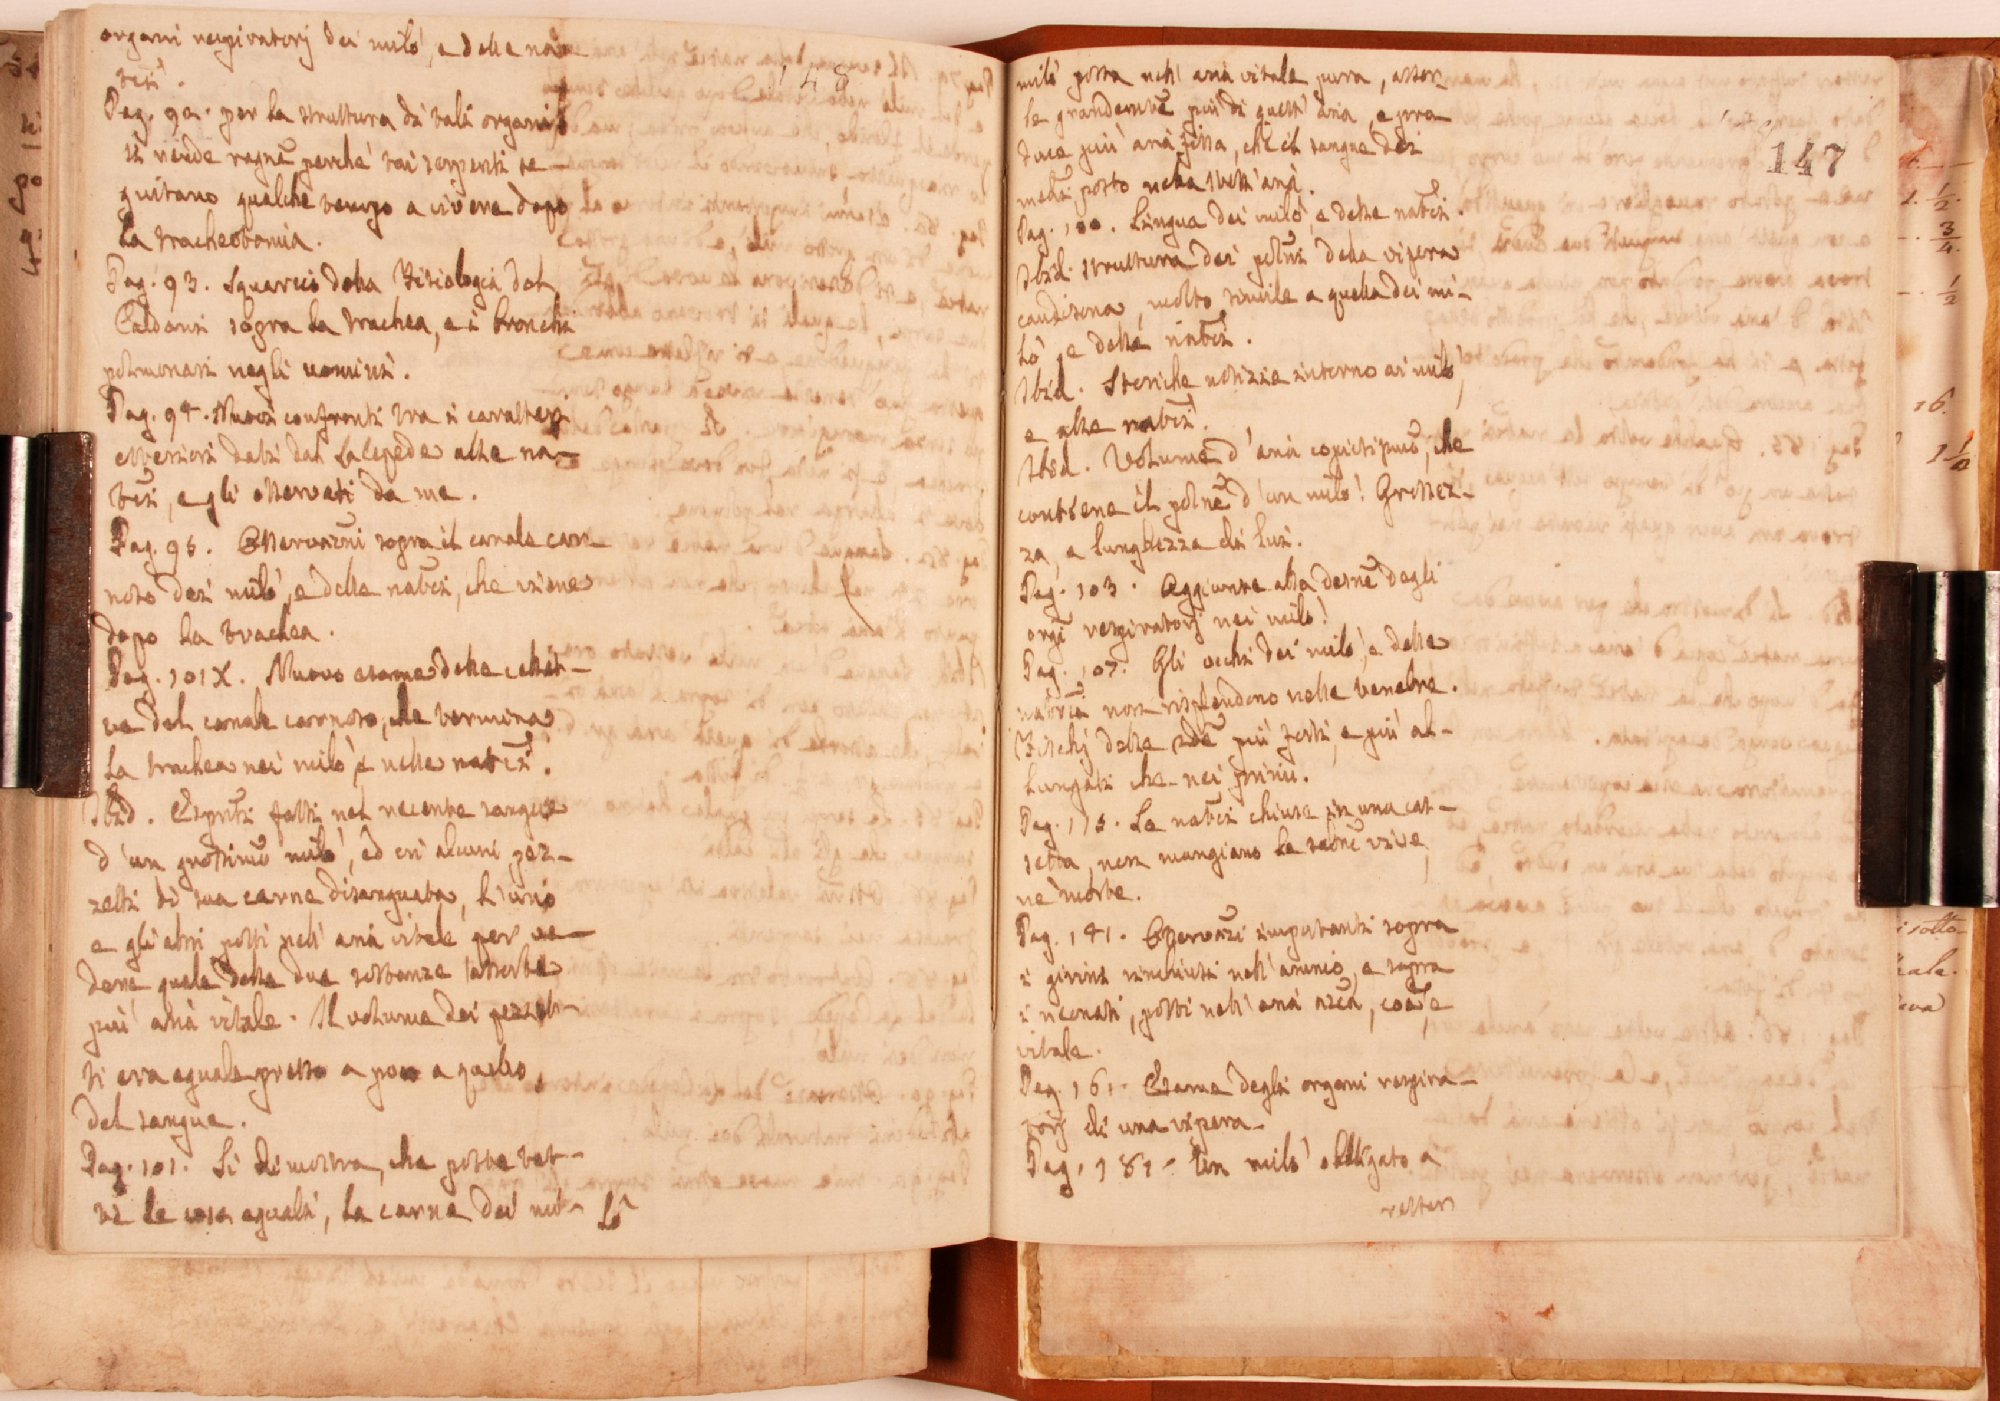 organi respiratorj dei milò, e delle na-
trici.
Pag. 92. per la struttura di tali organi
si rende ragne perche' tai serpenti se-
guitano qualche tempo a vivere dopo
la tracheotomia.
Pag. 93. Squarcio della Fisiologia del
Caldani sopra la trachea, e i bronchi
polmonari negli uomini.
Pag. 94. Nuovi confronti tra i caratteri
esteriori dati dal Lacepede alle na-
trici, e gli osservati da me.
Pag. 95. Osservazni sopra il canale carn
noso dei milò, e delle natrici, che viene
dopo la trachea.
Pag. 101X. Nuovo esame delle cellet-
te del canale carnoso, che termina
la trachea nei milò e nelle natrici.
Ibid. Esprti fatti nel recente sangue
d'un grossimo milò, ed in alcuni pez-
zetti di sua carne disanguata, l'uno
e gli altri posti nell'aria vitale per ve-
dere quale delle due sostanze assorbe
più aria vitale. Il volume dei pezzet-
ti era eguale presso a poco a quello
del sangue.
Pag. 101. Si dimostra, che poste tut-
te le cose eguali, la carne del mi- lò
148
147
milò posta nell'aria vitale pura, assor-
be grandemte più di quest'aria, e pro
duce più aria fissa, che il sangue dei
medi posto nella stess'aria.
Pag. 100. Lingua dei milò, e delle natrici.
Ibid. Struttura dei polmi della vipera
caudisona, molto simile a quella dei mi-
lò, e delle natrici.
Ibid. Storiche notizie intorno ai milò,
e alle natrici.
Ibid. Volume d'aria copiosissimo, che
contiene il polmne d'un milò! Grossez-
za, e lunghezza di lui.
Pag. 103. Aggiunte alla descrne degli
orgi respiratorj nei milò!
Pag. 107. Gli occhi dei milò, e delle
natrici non risplendono nelle tenebre.
Fischj delle più forti, e più al-
lungati che nei primi.
Pag. 115. Le natrici chiuse in una cas-
setta, non mangiano le rane vive,
nè morte.
Pag. 141. Osservazi importanti sopra
i girini rinchiusi nell'amnio, e sopra
i neonati, posti nell'aria , come
vitale.
Pag. 161. Esame degli organi respira-
torj di una vipera.
Pag. 181. Un milò obbligato a
restar